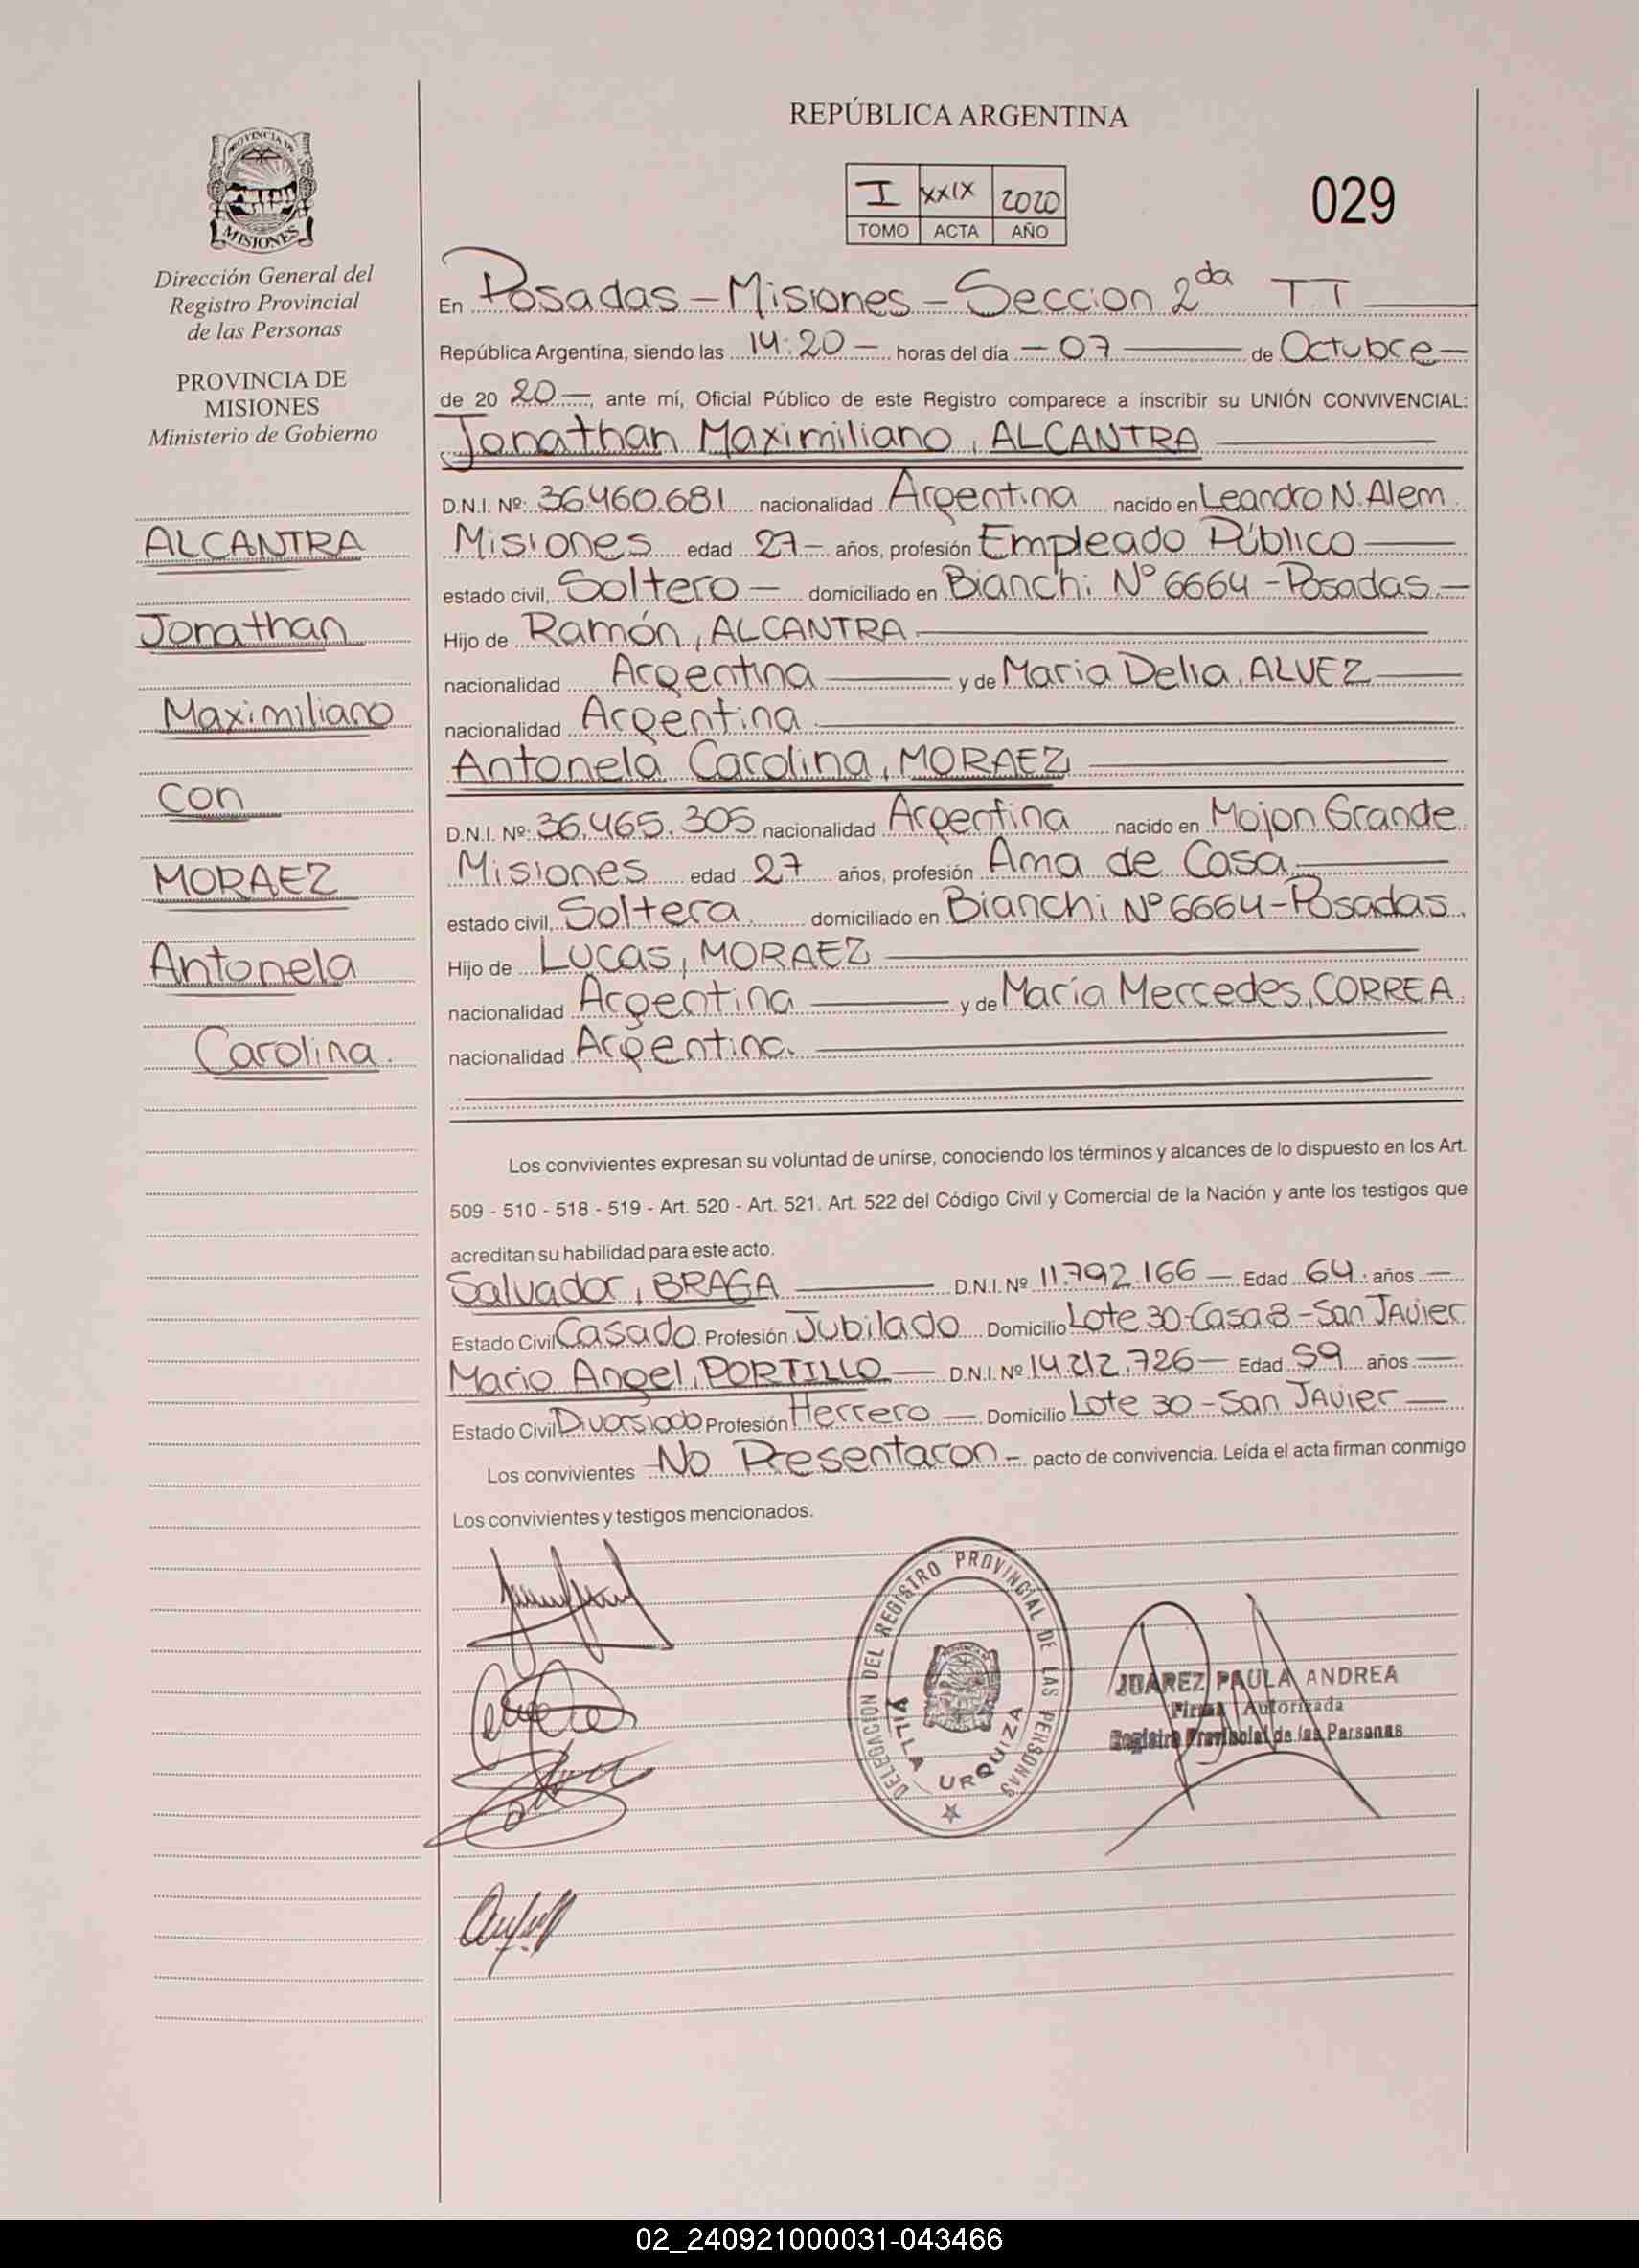 REPÚBLICA ARGENTINA
I XXIX 2020
TOMO ACTA AÑO
029
PROVINCIA DE
MISIONES
Dirección General del
Registro Provincial
de las Personas
PROVINCIA DE
MISIONES
Ministerio de Gobierno
ALCANTRA
Jonathan
Maximiliano
Con
MORAEZ
Antonela
Carolina.
En Posadas - Misiones - Seccion 2da TT
República Argentina, siendo las 14:20 - horas del día - 07 de Octubre -
de 20 20 -, ante mí, Oficial Público de este Registro comparece a inscribir su UNIÓN CONVIVENCIAL:
Jonathan Maximiliano, ALCANTRA
D.N.I. Nº: 36.460.681 nacionalidad Argentina nacido en Leandro N. Alem
Misiones edad 27 - años, profesión Empleado Público
estado civil, Soltero - domiciliado en Bianchi Nº 6664 - Posadas -
Hijo de Ramón, ALCANTRA
nacionalidad Argentina y de Maria Delia, ALVEZ
nacionalidad Argentina
Antonela Carolina, MORAEZ
D.N.I. Nº: 36.465.305 nacionalidad Argentina nacido en Mojon Grande
Misiones edad 27 años, profesión Ama de Casa
estado civil, Soltera domiciliado en Bianchi Nº 6664 - Posadas.
Hijo de Lucas, MORAEZ
nacionalidad Argentina y de María Mercedes, CORREA
nacionalidad Argentina.
Los convivientes expresan su voluntad de unirse, conociendo los términos y alcances de lo dispuesto en los Art.
509 - 510 - 518 - 519 - Art. 520 - Art. 521. Art. 522 del Código Civil y Comercial de la Nación y ante los testigos que
acreditan su habilidad para este acto.
Salvador, BRAGA D.N.I. Nº 11.792.166 - Edad 64 . años -
Estado Civil Casado Profesión Jubilado Domicilio Lote 30 - Casa 8 - San JAvier
Mario Angel, PORTILLO - D.N.I. Nº 14.212.726 - Edad 59 años -
Estado Civil Divorsiado Profesión Herrero - Domicilio Lote 30 - San JAvier -
Los convivientes No Presentaron - pacto de convivencia. Leída el acta firman conmigo
Los convivientes y testigos mencionados.
DELEGACION DEL REGISTRO PROVINCIAL DE LAS PERSONAS
VILLA URQUIZA
JUAREZ PAULA ANDREA
Firma Autorizada
Registro Provincial de las Personas
02_240921000031-043466